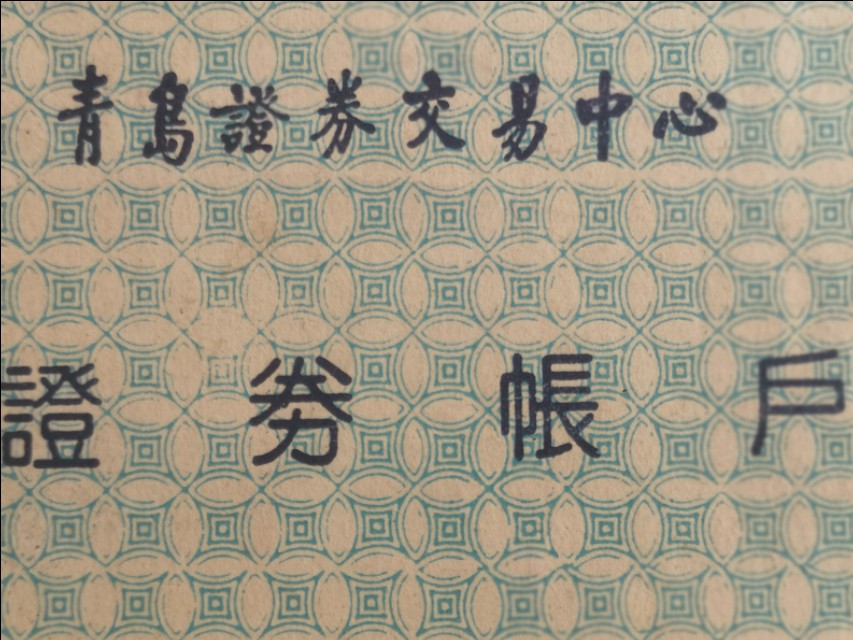 青島證券交易中心
證券帳戶